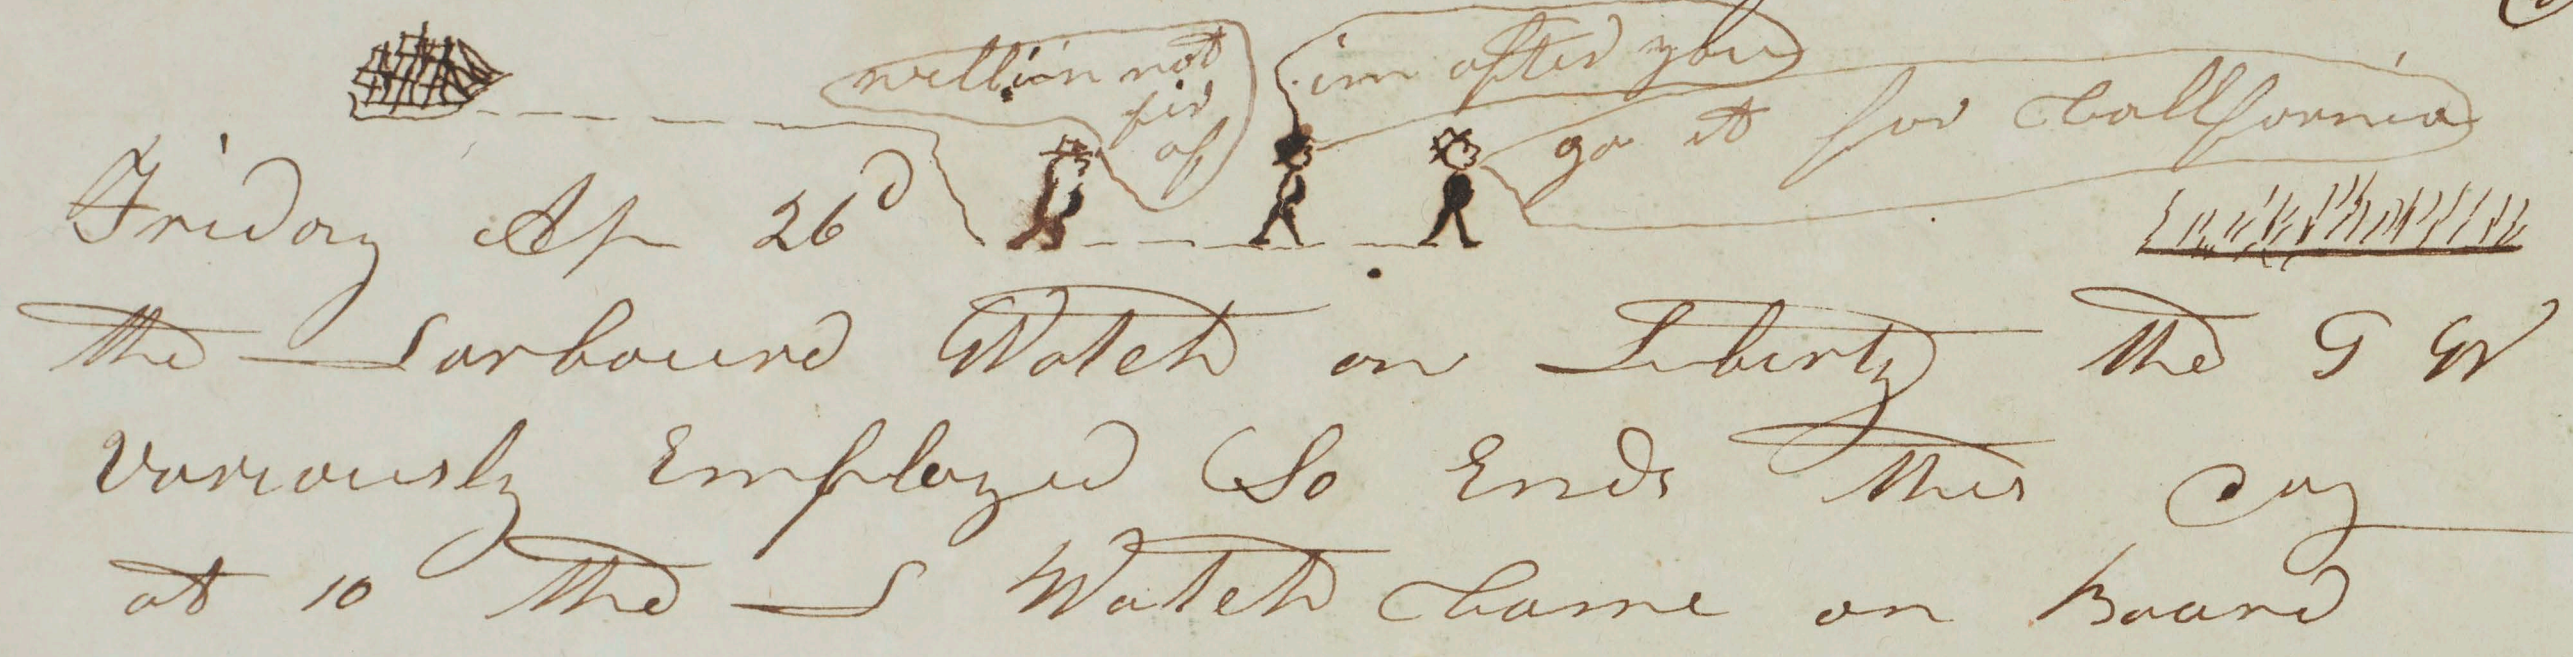 well im not
fir
of
im after you
go it for Callfornia
Friday Ap 26d
the Larbourd Watch on Liberty the G W
Variously Employed So Ends this Day
at 10 the L Watch Came on Board